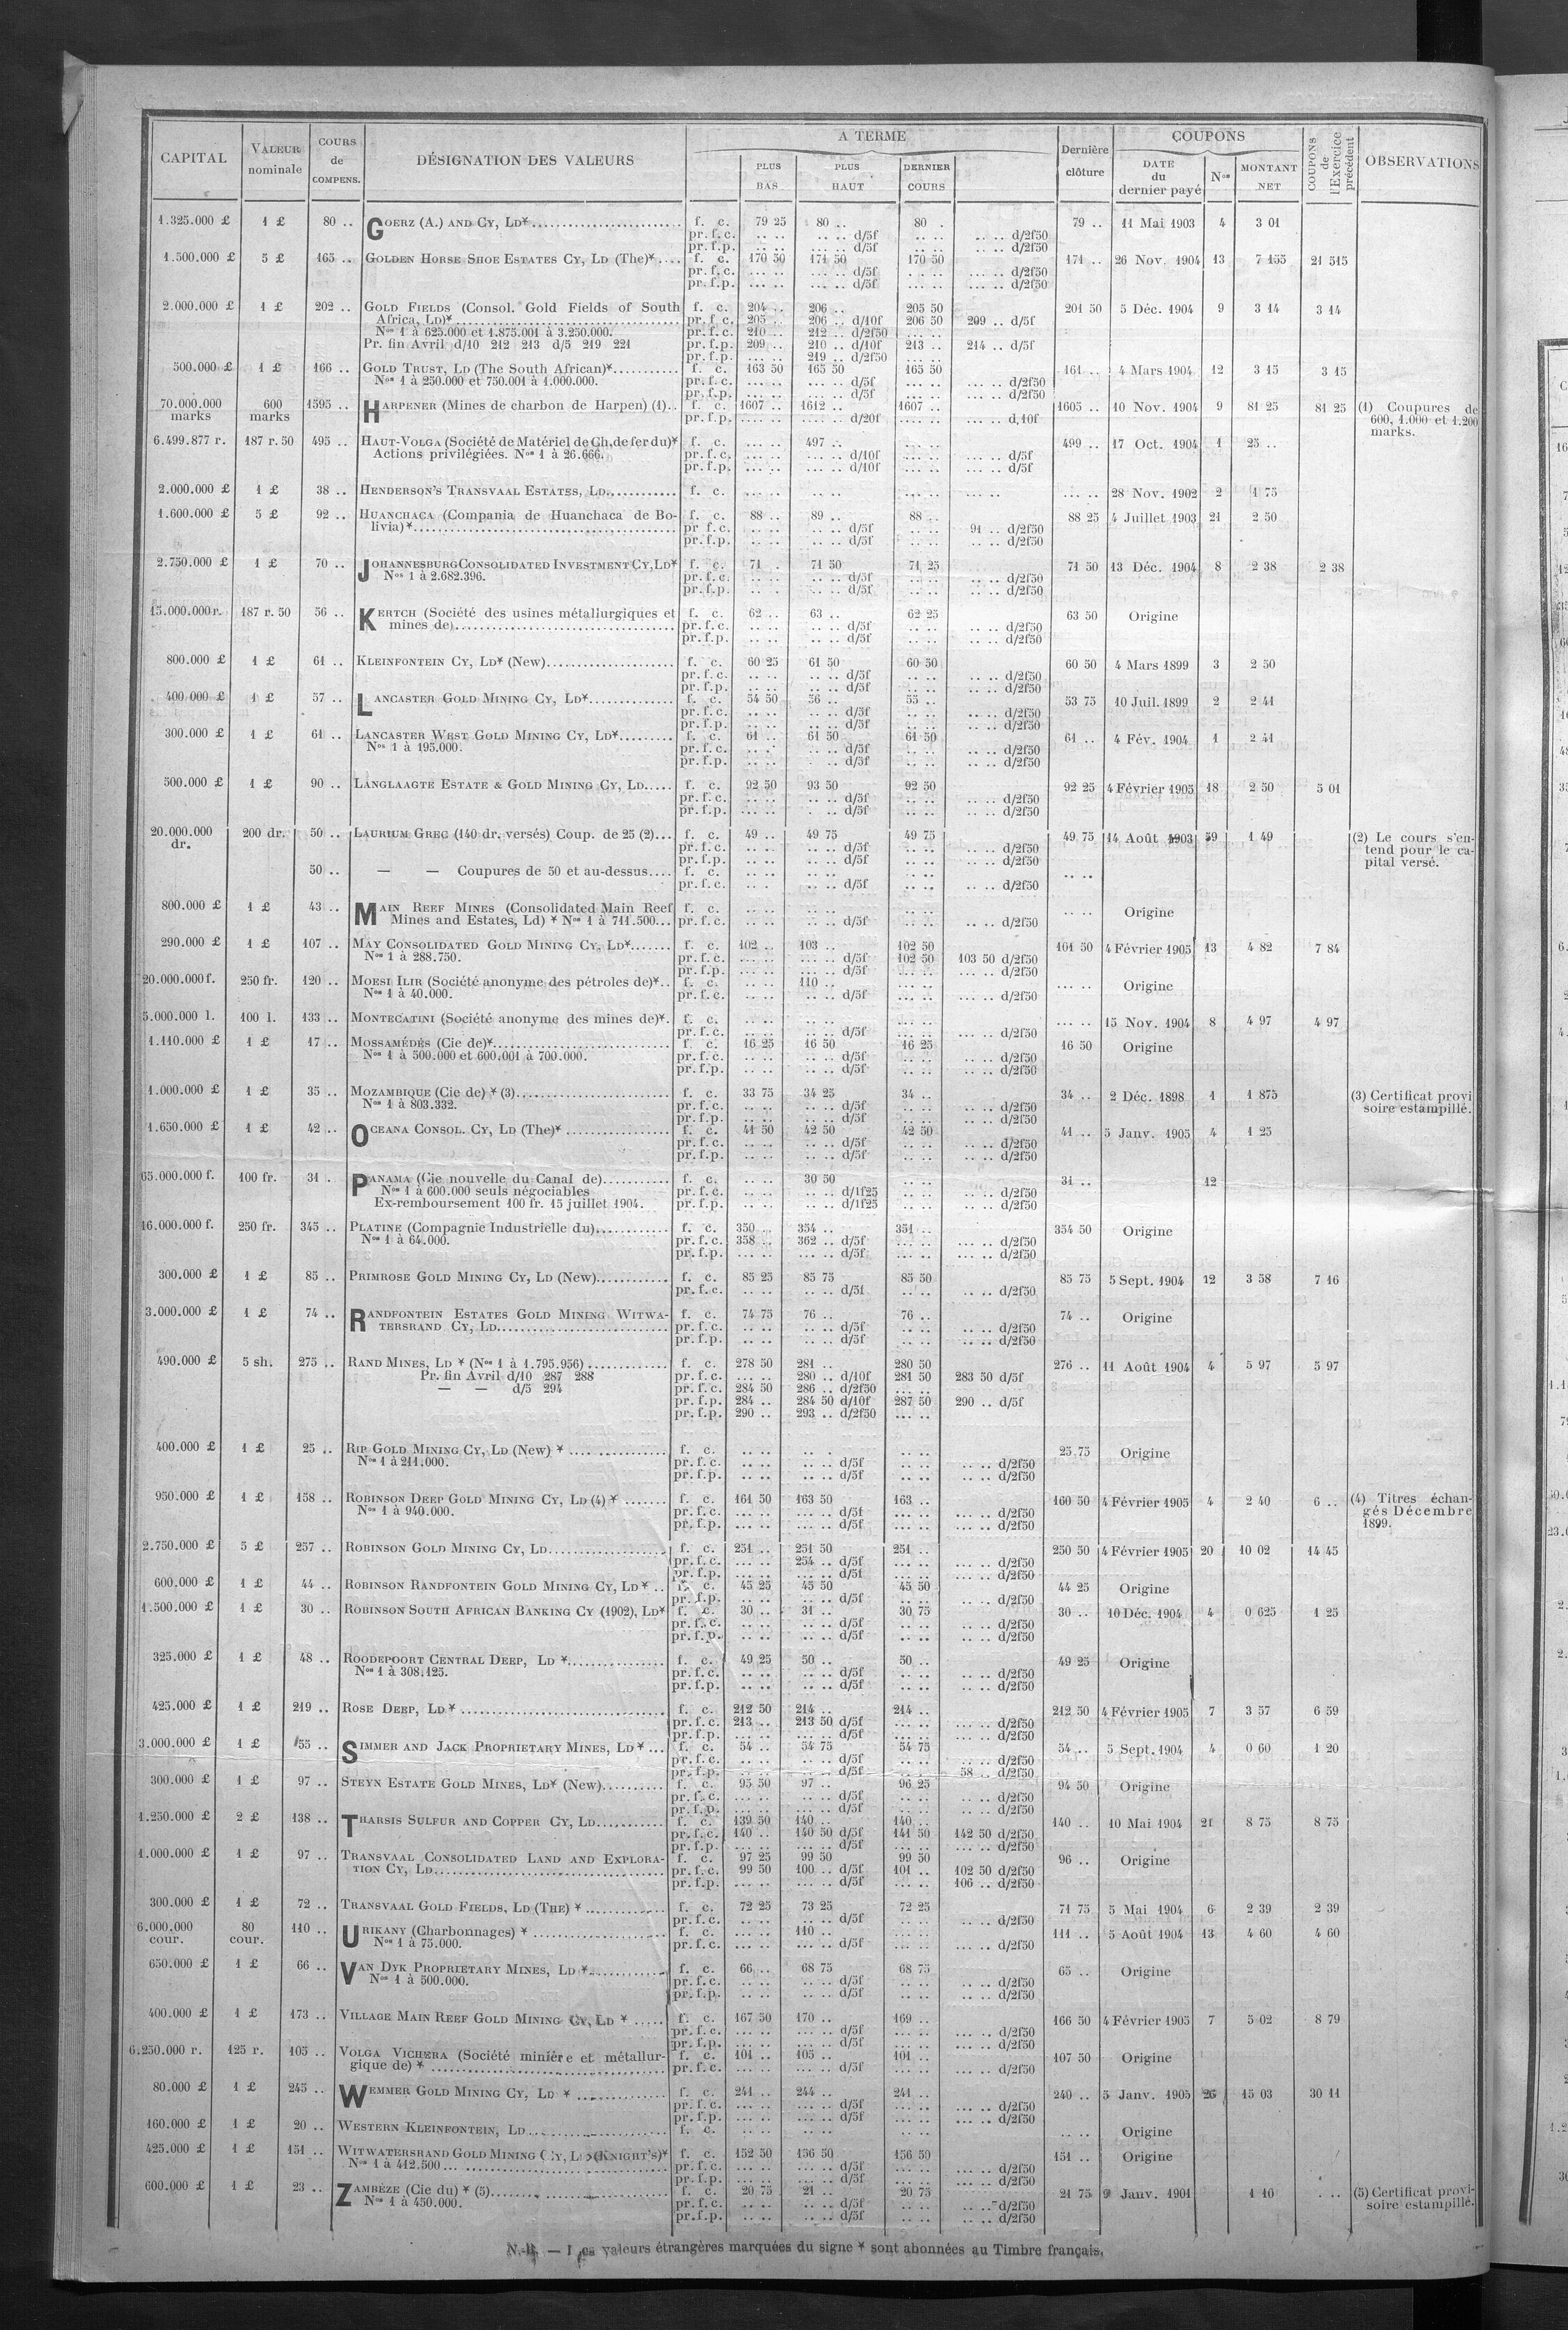 CAPITAL | VALEUR nominale | COURS de COMPENS. | DÉSIGNATION DES VALEURS | A TERME | PLUS BAS | PLUS HAUT | DERNIER COURS | Dernière clôture | COUPONS | DATE du dernier payé | Nos | MONTANT NET | COUPONS de l'Exercice précédent | OBSERVATIONS
1.325.000 £ | 1 £ | 80 .. | GOERZ (A.) AND CY, LD* | f. c. | 79 25 | 80 .. | 80 . | 79 .. | 11 Mai 1903 | 4 | 3 01
pr. f. c. | .. .. | .. .. d/5f | .. .. | .. .. d/2f50
pr. f. p. | .. .. | .. .. d/5f | .. .. | .. .. d/2f50
1.500.000 £ | 5 £ | 165 .. | GOLDEN HORSE SHOE ESTATES CY, LD (The)* | f. c. | 170 50 | 171 50 | 170 50 | 171 .. | 26 Nov. 1904 | 13 | 7 155 | 21 515
pr. f. c. | ... .. | ... .. d/5f | ... .. | ... .. d/2f50
pr. f. p. | ... .. | ... .. d/5f | ... .. | ... .. d/2f50
2.000.000 £ | 1 £ | 202 .. | GOLD FIELDS (Consol. Gold Fields of South | f. c. | 204 .. | 206 .. | 205 50 | 201 50 | 5 Déc. 1904 | 9 | 3 14 | 3 14
Africa, LD)* | pr. f. c. | 205 .. | 206 .. d/10f | 206 50 | 209 .. d/5f
Nos 1 à 625.000 et 1.875.001 à 3.250.000. | pr. f. c. | 210 .. | 212 .. d/2f50 | ... ..
Pr. fin Avril d/10 212 213 d/5 219 221 | pr. f. p. | 209 .. | 210 .. d/10f | 213 .. | 214 .. d/5f
pr. f. p. | ... .. | 219 .. d/2f50 | ... ..
500.000 £ | 1 £ | 166 .. | GOLD TRUST, LD (The South African)* | f. c. | 163 50 | 165 50 | 165 50 | 161 .. | 4 Mars 1904 | 12 | 3 15 | 3 15
Nos 1 à 250.000 et 750.001 à 1.000.000. | pr. f. c. | ... .. | ... .. d/5f | ... .. | ... .. d/2f50
pr. f. p. | ... .. | ... .. d/5f | ... .. | ... .. d/2f50
70.000.000 marks | 600 marks | 1595 .. | HARPENER (Mines de charbon de Harpen) (1).. | f. c. | 1607 .. | 1612 .. | 1607 .. | 1605 .. | 10 Nov. 1904 | 9 | 81 25 | 81 25 | (1) Coupures de
pr. f. p. | .... .. | .... .. d/20f | .... .. | ... .. d/10f | 600, 1.000 et 1.200 marks.
6.499.877 r. | 187 r. 50 | 495 .. | HAUT-VOLGA (Société de Matériel de Ch. de fer du)* | f. c. | ... .. | 497 .. | ... .. | 499 .. | 17 Oct. 1904 | 1 | 25 ..
Actions privilégiées. Nos 1 à 26.666. | pr. f. c. | ... .. | ... .. d/10f | ... .. | ... .. d/5f
pr. f. p. | ... .. | ... .. d/10f | ... .. | ... .. d/5f
2.000.000 £ | 1 £ | 38 .. | HENDERSON'S TRANSVAAL ESTATES, LD. | f. c. | ... .. | .. .. | ... .. | ... .. | ... .. | 28 Nov. 1902 | 2 | 1 75
1.600.000 £ | 5 £ | 92 .. | HUANCHACA (Compania de Huanchaca de Bo- | f. c. | 88 .. | 89 .. | 88 .. | 88 25 | 4 Juillet 1903 | 21 | 2 50
livia)* | pr. f. c. | .. .. | .. .. d/5f | .. .. | 91 .. d/2f50
pr. f. p. | .. .. | .. .. d/5f | .. .. | .. .. d/2f50
2.750.000 £ | 1 £ | 70 .. | JOHANNESBURG CONSOLIDATED INVESTMENT CY, LD* | f. c. | 71 . | 71 50 | 71 25 | 71 50 | 13 Déc. 1904 | 8 | 2 38 | 2 38
Nos 1 à 2.682.396. | pr. f. c. | .. .. | .. .. d/5f | .. .. | .. .. d/2f50
pr. f. p. | .. .. | .. .. d/5f | .. .. | .. .. d/2f50
15.000.000 r. | 187 r. 50 | 56 .. | KERTCH (Société des usines métallurgiques et | f. c. | 62 .. | 63 .. | 62 25 | 63 50 | Origine
mines de) | pr. f. c. | .. .. | .. .. d/5f | .. .. | .. .. d/2f50
pr. f. p. | .. .. | .. .. d/5f | .. .. | .. .. d/2f50
800.000 £ | 1 £ | 61 .. | KLEINFONTEIN CY, LD* (New) | f. c. | 60 25 | 61 50 | 60 50 | 60 50 | 4 Mars 1899 | 3 | 2 50
pr. f. c. | .. .. | .. .. d/5f | .. .. | .. .. d/2f50
pr. f. p. | .. .. | .. .. d/5f | .. .. | .. .. d/2f50
400.000 £ | 1 £ | 57 .. | LANCASTER GOLD MINING CY, LD* | f. c. | 54 50 | 56 .. | 55 .. | 53 75 | 10 Juil. 1899 | 2 | 2 41
pr. f. c. | .. .. | .. .. d/5f | .. .. | .. .. d/2f50
pr. f. p. | .. .. | .. .. d/5f | .. .. | .. .. d/2f50
300.000 £ | 1 £ | 61 .. | LANCASTER WEST GOLD MINING CY, LD* | f. c. | 61 .. | 61 50 | 61 50 | 61 .. | 4 Fév. 1904 | 1 | 2 41
Nos 1 à 195.000. | pr. f. c. | .. .. | .. .. d/5f | .. .. | .. .. d/2f50
pr. f. p. | .. .. | .. .. d/5f | .. .. | .. .. d/2f50
500.000 £ | 1 £ | 90 .. | LANGLAAGTE ESTATE & GOLD MINING CY, LD | f. c. | 92 50 | 93 50 | 92 50 | 92 25 | 4 Février 1905 | 18 | 2 50 | 5 01
pr. f. c. | .. .. | .. .. d/5f | .. .. | .. .. d/2f50
pr. f. p. | .. .. | .. .. d/5f | .. .. | .. .. d/2f50
20.000.000 dr. | 200 dr. | 50 .. | LAURIUM GREC (140 dr. versés) Coup. de 25 (2) | f. c. | 49 .. | 49 75 | 49 75 | 49 75 | 14 Août 1903 | 59 | 1 49 | (2) Le cours s'en-
pr. f. c. | .. .. | .. .. d/5f | .. .. | .. .. d/2f50 | tend pour le ca-
pr. f. p. | .. .. | .. .. d/5f | .. .. | .. .. d/2f50 | pital versé.
50 .. | — — Coupures de 50 et au-dessus | f. c. | .. .. | .. .. | .. .. | .. ..
pr. f. c. | .. . | .. .. d/5f | .. .. | .. .. d/2f50
800.000 £ | 1 £ | 43 .. | MAIN REEF MINES (Consolidated Main Reef | f. c. | .. .. | .. .. | .. .. | .. .. | Origine
Mines and Estates, Ld) * Nos 1 à 711.500 | pr. f. c. | .. .. | .. .. d/5f | .. .. | .. .. d/2f50
290.000 £ | 1 £ | 107 .. | MAY CONSOLIDATED GOLD MINING CY, LD* | f. c. | 102 .. | 103 .. | 102 50 | 101 50 | 4 Février 1905 | 13 | 4 82 | 7 84
Nos 1 à 288.750. | pr. f. c. | ... .. | ... .. d/5f | 102 50 | 103 50 d/2f50
pr. f. p. | ... .. | ... .. d/5f | ... .. | ... .. d/2f50
20.000.000 f. | 250 fr. | 120 .. | MOESI ILIR (Société anonyme des pétroles de)* | f. c. | .. .. | 110 .. | ... .. | ... .. | Origine
Nos 1 à 40.000. | pr. f. c. | .. .. | .. .. d/5f | ... .. | ... .. d/2f50
5.000.000 l. | 100 l. | 133 .. | MONTECATINI (Société anonyme des mines de)*. | f. c. | .. .. | .. .. | ... .. | ... .. | 15 Nov. 1904 | 8 | 4 97 | 4 97
pr. f. c. | .. .. | .. .. d/5f | ... .. | ... .. d/2f50
1.110.000 £ | 1 £ | 17 .. | MOSSAMÉDÈS (Cie de)* | f. c. | 16 25 | 16 50 | 16 25 | 16 50 | Origine
Nos 1 à 500.000 et 600.001 à 700.000. | pr. f. c. | .. .. | .. .. d/5f | .. .. | .. .. d/2f50
pr. f. p. | .. .. | .. .. d/5f | .. .. | .. .. d/2f50
1.000.000 £ | 1 £ | 35 .. | MOZAMBIQUE (Cie de) * (3) | f. c. | 33 75 | 34 25 | 34 .. | 34 .. | 2 Déc. 1898 | 1 | 1 875 | (3) Certificat provi
Nos 1 à 803.332. | pr. f. c. | .. .. | .. .. d/5f | .. .. | .. .. d/2f50 | soire estampillé.
pr. f. p. | .. .. | .. .. d/5f | .. .. | .. .. d/2f50
1.650.000 £ | 1 £ | 42 .. | OCEANA CONSOL. CY, LD (The)* | f. c. | 41 50 | 42 50 | 42 50 | 41 .. | 5 Janv. 1905 | 4 | 1 25
pr. f. c. | .. .. | .. .. d/5f | .. .. | .. .. d/2f50
pr. f. p. | .. .. | .. .. d/5f | .. .. | .. .. d/2f50
65.000.000 f. | 100 fr. | 31 . | PANAMA (Cie nouvelle du Canal de) | f. c. | .. .. | 30 50 | .. .. | 31 .. | 12
Nos 1 à 600.000 seuls négociables | pr. f. c. | .. .. | .. .. d/1f25 | .. .. | .. .. d/2f50
Ex-remboursement 100 fr. 15 juillet 1904. | pr. f. p. | .. .. | .. .. d/1f25 | .. .. | .. .. d/2f50
16.000.000 f. | 250 fr. | 345 .. | PLATINE (Compagnie Industrielle du) | f. c. | 350 .. | 354 .. | 351 .. | 354 50 | Origine
Nos 1 à 64.000. | pr. f. c. | 358 .. | 362 .. d/5f | ... .. | ... .. d/2f50
pr. f. p. | ... .. | ... .. d/5f | ... .. | ... .. d/2f50
300.000 £ | 1 £ | 85 .. | PRIMROSE GOLD MINING CY, LD (New) | f. c. | 85 25 | 85 75 | 85 50 | 85 75 | 5 Sept. 1904 | 12 | 3 58 | 7 16
pr. f. c. | .. .. | .. .. d/5f | .. .. | .. .. d/2f50
3.000.000 £ | 1 £ | 74 .. | RANDFONTEIN ESTATES GOLD MINING WITWA- | f. c. | 74 75 | 76 .. | 76 .. | 74 .. | Origine
TERSRAND CY, LD | pr. f. c. | .. .. | .. .. d/5f | .. .. | .. .. d/2f50
pr. f. p. | .. .. | .. .. d/5f | .. .. | .. .. d/2f50
490.000 £ | 5 sh. | 275 .. | RAND MINES, LD * (Nos 1 à 1.795.956) | f. c. | 278 50 | 281 .. | 280 50 | 276 .. | 11 Août 1904 | 4 | 5 97 | 5 97
Pr. fin Avril d/10 287 288 | pr. f. c. | ... .. | 280 .. d/10f | 281 50 | 283 50 d/5f
— — d/5 294 | pr. f. c. | 284 50 | 286 .. d/2f50 | ... ..
pr. f. p. | 284 .. | 284 50 d/10f | 287 50 | 290 .. d/5f
pr. f. p. | 290 .. | 293 .. d/2f50 | ... ..
400.000 £ | 1 £ | 25 .. | RIP GOLD MINING CY, LD (New) * | f. c. | .. .. | .. . | .. .. | 25 75 | Origine
Nos 1 à 211.000. | pr. f. c. | .. .. | .. .. d/5f | .. .. | .. .. d/2f50
pr. f. p. | .. .. | .. .. d/5f | .. .. | .. .. d/2f50
950.000 £ | 1 £ | 158 .. | ROBINSON DEEP GOLD MINING CY, LD (4) * | f. c. | 161 50 | 163 50 | 163 .. | 160 50 | 4 Février 1905 | 4 | 2 40 | 6 .. | (4) Titres échan-
Nos 1 à 940.000. | pr. f. c. | ... .. | ... .. d/5f | ... .. | ... .. d/2f50 | gés Décembre
pr. f. p. | ... .. | ... .. d/5f | ... .. | ... .. d/2f50 | 1899.
2.750.000 £ | 5 £ | 257 .. | ROBINSON GOLD MINING CY, LD | f. c. | 251 .. | 251 50 | 251 .. | 250 50 | 4 Février 1905 | 20 | 10 02 | 14 45
pr. f. c. | ... .. | 254 .. d/5f | ... .. | ... .. d/2f50
pr. f. p. | ... .. | ... .. d/5f | ... .. | ... .. d/2f50
600.000 £ | 1 £ | 44 .. | ROBINSON RANDFONTEIN GOLD MINING CY, LD * | f. c. | 45 25 | 45 50 | 45 50 | 44 25 | Origine
pr. f. p. | .. .. | .. .. d/5f | .. .. | .. .. d/2f50
1.500.000 £ | 1 £ | 30 .. | ROBINSON SOUTH AFRICAN BANKING CY (1902), LD* | f. c. | 30 .. | 31 .. | 30 75 | 30 .. | 10 Déc. 1904 | 4 | 0 625 | 1 25
pr. f. c. | .. .. | .. .. d/5f | .. .. | .. .. d/2f50
pr. f. p. | .. .. | .. .. d/5f | .. .. | .. .. d/2f50
325.000 £ | 1 £ | 48 .. | ROODEPOORT CENTRAL DEEP, LD * | f. c. | 49 25 | 50 .. | 50 .. | 49 25 | Origine
Nos 1 à 308.125. | pr. f. c. | .. .. | .. .. d/5f | .. .. | .. .. d/2f50
pr. f. p. | .. .. | .. .. d/5f | .. .. | .. .. d/2f50
425.000 £ | 1 £ | 219 .. | ROSE DEEP, LD * | f. c. | 212 50 | 214 .. | 214 .. | 212 50 | 4 Février 1905 | 7 | 3 57 | 6 59
pr. f. c. | 213 .. | 213 50 d/5f | ... .. | ... .. d/2f50
pr. f. p. | ... .. | ... .. d/5f | ... .. | ... .. d/2f50
3.000.000 £ | 1 £ | 55 .. | SIMMER AND JACK PROPRIETARY MINES, LD * | f. c. | 54 .. | 54 75 | 54 75 | 54 .. | 5 Sept. 1904 | 4 | 0 60 | 1 20
pr. f. c. | .. .. | .. .. d/5f | .. .. | .. .. d/2f50
pr. f. p. | .. .. | .. .. d/5f | .. .. | 58 .. d/2f50
300.000 £ | 1 £ | 97 .. | STEYN ESTATE GOLD MINES, LD* (New) | f. c. | 95 50 | 97 .. | 96 25 | 94 50 | Origine
pr. f. c. | ... .. | .. .. d/5f | .. .. | .. .. d/2f50
pr. f. p. | ... .. | .. .. d/5f | .. .. | .. .. d/2f50
1.250.000 £ | 2 £ | 138 .. | THARSIS SULFUR AND COPPER CY, LD | f. c. | 139 50 | 140 .. | 140 .. | 140 .. | 10 Mai 1904 | 21 | 8 75 | 8 75
pr. f. c. | 140 .. | 140 50 d/5f | 141 50 | 142 50 d/2f50
pr. f. p. | ... .. | ... .. d/5f | ... .. | ... .. d/2f50
1.000.000 £ | 1 £ | 97 .. | TRANSVAAL CONSOLIDATED LAND AND EXPLORA- | f. c. | 97 25 | 99 50 | 99 50 | 96 .. | Origine
TION CY, LD | pr. f. c. | 99 50 | 100 .. d/5f | 101 .. | 102 50 d/2f50
pr. f. p. | ... .. | ... .. d/5f | ... .. | 106 .. d/2f50
300.000 £ | 1 £ | 72 .. | TRANSVAAL GOLD FIELDS, LD (THE) * | f. c. | 72 25 | 73 25 | 72 25 | 71 75 | 5 Mai 1904 | 6 | 2 39 | 2 39
pr. f. c. | .. .. | .. .. d/5f | .. .. | .. .. d/2f50
6.000.000 cour. | 80 cour. | 110 .. | URIKANY (Charbonnages) * | f. c. | ... .. | 110 .. | ... .. | 111 .. | 5 Août 1904 | 13 | 4 60 | 4 60
Nos 1 à 75.000. | pr. f. c. | ... .. | ... .. d/5f | ... .. | ... .. d/2f50
650.000 £ | 1 £ | 66 .. | VAN DYK PROPRIETARY MINES, LD * | f. c. | 66 .. | 68 75 | 68 75 | 65 .. | Origine
Nos 1 à 500.000. | pr. f. c. | .. .. | .. .. d/5f | .. .. | .. .. d/2f50
pr. f. p. | .. .. | .. .. d/5f | .. .. | .. .. d/2f50
400.000 £ | 1 £ | 173 .. | VILLAGE MAIN REEF GOLD MINING CY, LD * | f. c. | 167 50 | 170 .. | 169 .. | 166 50 | 4 Février 1905 | 7 | 5 02 | 8 79
pr. f. c. | ... .. | ... .. d/5f | ... .. | ... .. d/2f50
pr. f. p. | ... .. | ... .. d/5f | ... .. | ... .. d/2f50
6.250.000 r. | 125 r. | 105 .. | VOLGA VICHERA (Société minière et métallur- | f. c. | 101 .. | 105 .. | 101 .. | 107 50 | Origine
gique de) * | pr. f. c. | ... .. | ... .. d/5f | ... .. | ... .. d/2f50
80.000 £ | 1 £ | 245 .. | WEMMER GOLD MINING CY, LD * | f. c. | 241 .. | 244 .. | 241 .. | 240 .. | 5 Janv. 1905 | 26 | 15 03 | 30 11
pr. f. c. | ... .. | ... .. d/5f | ... .. | ... .. d/2f50
pr. f. p. | ... .. | ... .. d/5f | ... .. | ... .. d/2f50
160.000 £ | 1 £ | 20 .. | WESTERN KLEINFONTEIN, LD | f. c. | .. .. | .. .. | .. .. | .. .. | Origine
425.000 £ | 1 £ | 151 .. | WITWATERSRAND GOLD MINING CY, LD (KNIGHT'S)* | f. c. | 152 50 | 156 50 | 156 50 | 151 .. | Origine
Nos 1 à 412.500 | pr. f. c. | ... .. | ... .. d/5f | ... .. | ... .. d/2f50
pr. f. p. | ... .. | ... .. d/5f | ... .. | ... .. d/2f50
600.000 £ | 1 £ | 23 .. | ZAMBÈZE (Cie du) * (5) | f. c. | 20 75 | 21 .. | 20 75 | 21 75 | 9 Janv. 1901 | 1 10 | . .. | (5) Certificat provi-
Nos 1 à 450.000. | pr. f. c. | .. .. | .. .. d/5f | .. .. | .. .. d/2f50 | soire estampillé.
pr. f. p. | .. .. | .. .. d/5f | .. .. | .. .. d/2f50
N.-B. — Les valeurs étrangères marquées du signe * sont abonnées au Timbre français.